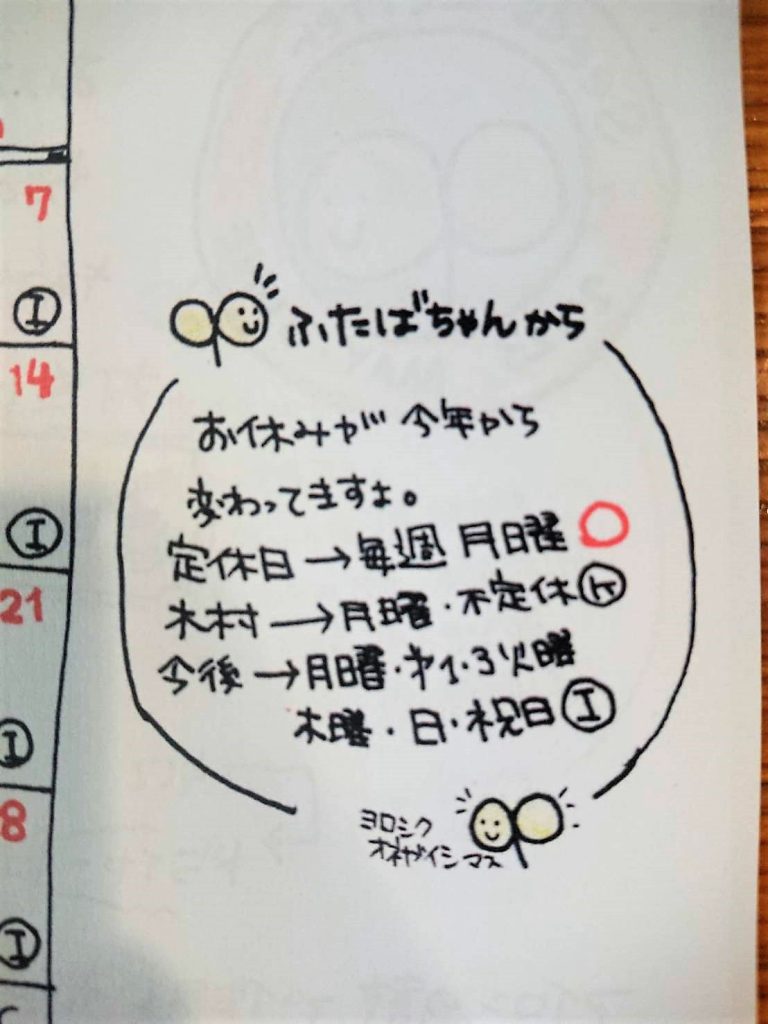 7
Ⓘ
14
Ⓘ
21
Ⓘ
8
Ⓘ
ふたばちゃんから
お休みが今年から
変わってきますよ。
定休日→毎週月曜日〇
木村→月曜・不定休Ⓚ
今後→月曜・才1・3火曜
木曜・日・祝日Ⓘ
ヨロシク
オネガイシマス